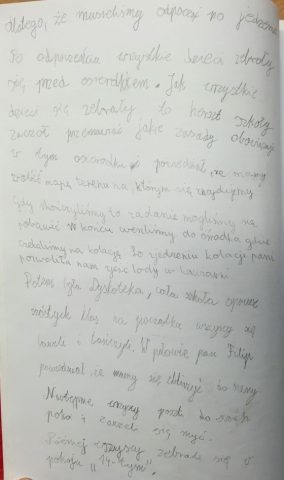 dlatego, że musieliśmy odpocząć po jedzeniu
Po odpoczęciu wszystkie dzieci zebrały
się przed ośrodkiem. Jak wszystkie
dzieci się zebrały to
zaczął przemawiać jakie zasady obowiązują
w tym ośrodku powiedział, że mamy
zrobić mapę terenu na którym się znajdujemy
Gdy skończyliśmy to zadanie mogliśmy się
pobawić. W końcu weszliśmy do środka gdzie
czekaliśmy na kolację. Po zjedzeniu kolacji pani
pozwoliła nam zjeść lody w kawiarni
Potem była Dyskoteka, cała szkoła oprócz
szóstych klas na początku wszyscy się
i tańczyli. W połowie pan Filip
powiedział, że mamy się zbliżyć do sceny.
Następnie wszyscy poszli do swoich
pokoi i zaczęli się myć.
Później wszyscy zebrali się w
pokoju "14-tym".